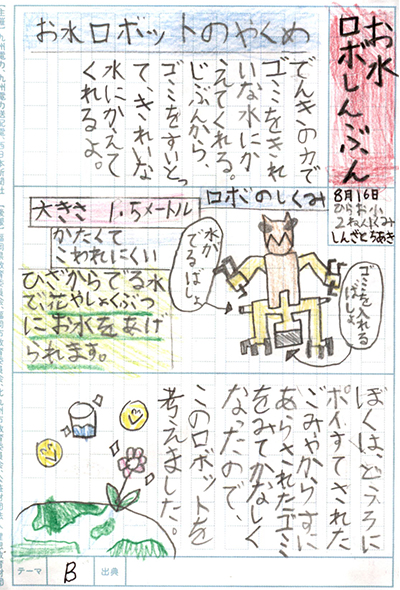 お水
ロボしんぶん
8月16日
ひらお小
2ねん1くみ
しんざとろあき
お水ロボットのやくめ
でんきの力で
ゴミをきれ
いな水にか
えてくれる。
じぶんから、
ゴミをすいとっ
て、きれいな
水にかえて
くれるよ。
ロボのしくみ
大きさ 1.5メートル
かたくて
こわれにくい
ひざからでる水
で花やしょくぶつ
にお水をあげ
られます。
水が
でるばしょ
ゴミを入れる
ばしょ
ぼくは、どうろに
ポイすてされた
ごみやからすに
あらされたゴミ
をみてかなしく
なったので、
このロボットを
考えました。
テーマ B 出典